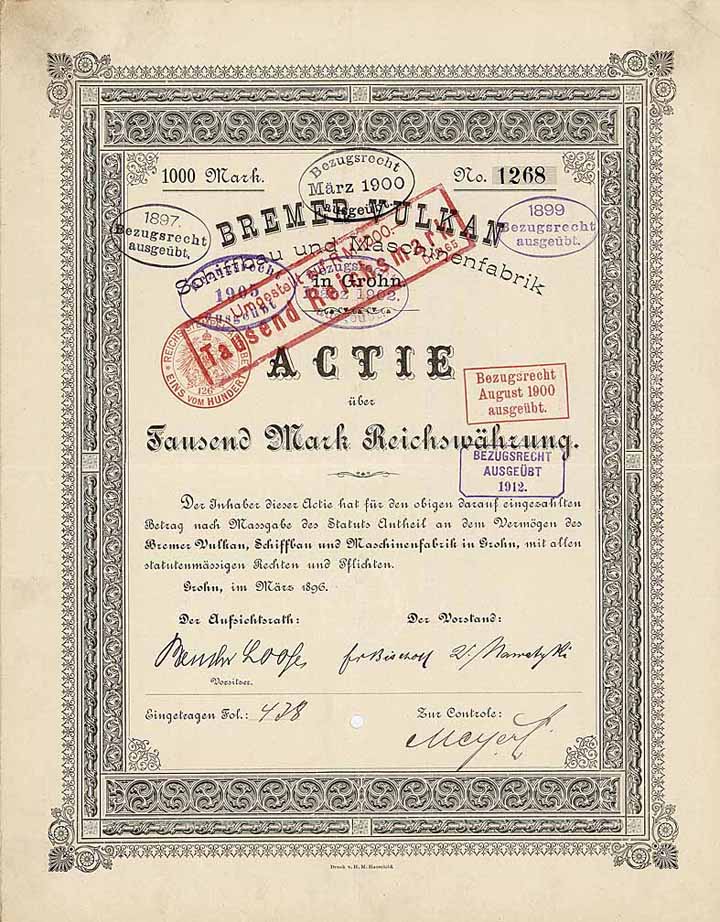 1000 Mark.
No. 1268
Bezugsrecht
März 1900
ausgeübt.
1897.
Bezugsrecht
ausgeübt.
1899
Bezugsrecht
ausgeübt.
BREMER VULKAN
Schiffbau und Maschinenfabrik
in Grohn.
Bezugsrecht
1905
ausgeübt
Bezugsrecht
März 1902.
Umgestellt
Tausend Reichsmark
REICHS
EINS VOM HUNDERT
ACTIE
über
Tausend Mark Reichswährung.
Bezugsrecht
August 1900
ausgeübt.
BEZUGSRECHT
AUSGEÜBT
1912.
Der Inhaber dieser Actie hat für den obigen darauf eingezahlten
Betrag nach Massgabe des Statuts Antheil an dem Vermögen des
Bremer Vulkan, Schiffbau und Maschinenfabrik in Grohn, mit allen
statutenmässigen Rechten und Pflichten.
Grohn, im März 1896.
Der Aufsichtsrath:
Der Vorstand:
Loose
Fr Bischoff V. Nawatzki
Vorsitzer.
Eingetragen Fol.: 438
Zur Controle:
Meyer
Druck v. H. M. Hauschild.